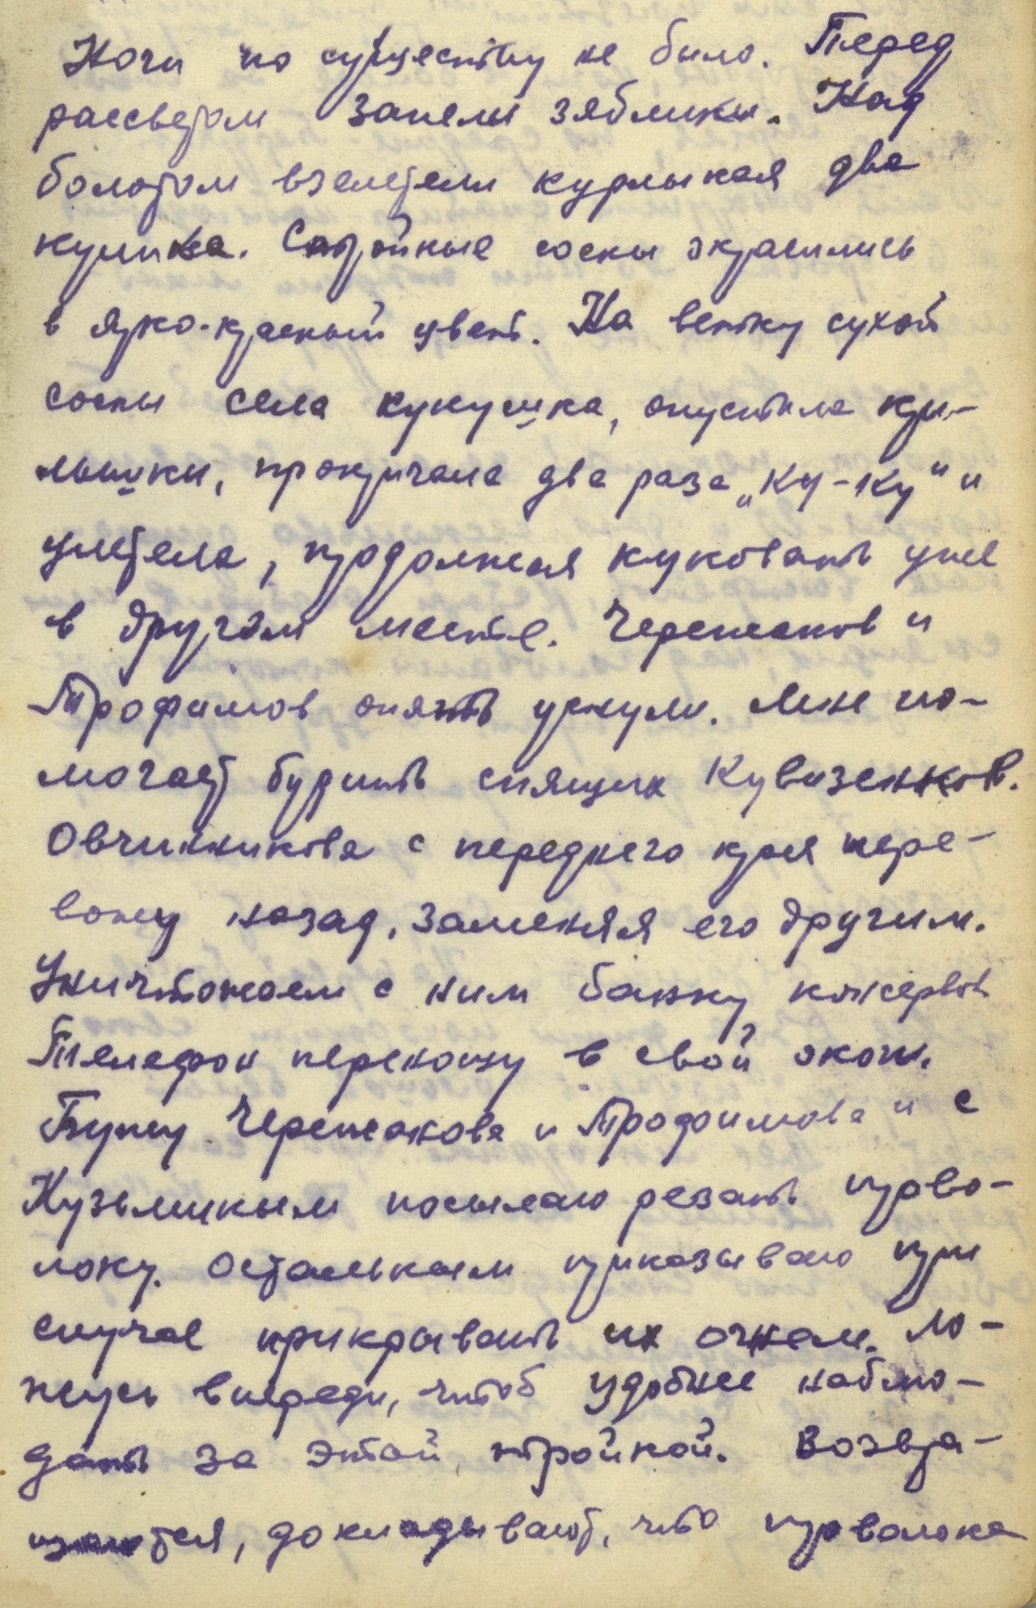 Ночи по существу не было. Перед
рассветом запели зяблики. Над
болотом взлетели курлыкая два
кулика. Стройные сосны окрасились
в ярко-красный цвет. На ветку сухой
сосны села кукушка, опустила кры-
лышки, прокричала два раза „Ку-ку" и
улетела, продолжая куковать уже
в другом месте. Черепанов и
Трофимов опять уснули. Мне по-
могает будить спящих Кувизенков.
Овчинникова с переднего края пере-
вожу назад, заменяя его другим.
Уничтожаем с ним банку консервов
Телефон переношу в свой окоп.
Бужу Черепанова и Трофимова и с
Кузьминым посылаю резать прово-
локу. Остальным приказываю при
случае прикрывать их огнем. Ло-
жусь впереди, чтоб удобнее наблю-
дать за этой тройкой. Возвра-
щаются, докладывают, что проволока